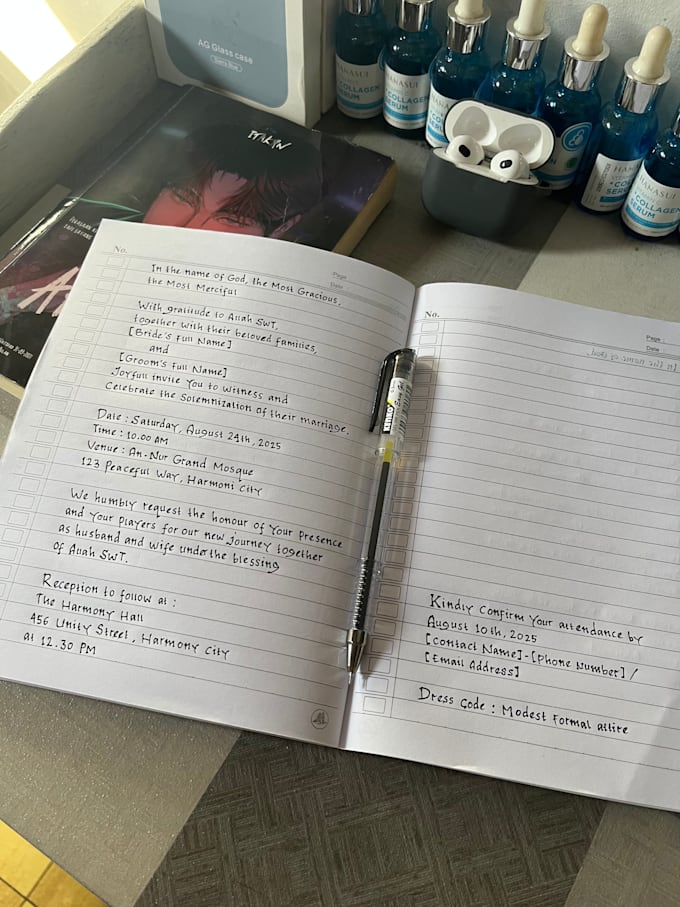 AG Glass case
HANASUI
COLLAGEN
SERUM
HANASUI
+COLLAGEN
SERUM
No.
Page :
Date :
In the name of God, the Most Gracious,
the Most Merciful
With gratitude to Allah SWT,
together with their beloved families,
[Bride's Full Name]
and
[Groom's Full Name]
Joyfull invite You to witness and
Celebrate the Solemnization of their marriage.
Date : Saturday, August 24th, 2025
Time : 10.00 AM
Venue : An-Nur Grand Mosque
123 Peaceful Way, Harmoni City
We humbly request the honour of Your Presence
and Your players for our new journey together
as husband and wife underthe blessing
of Allah SWT.
Reception to follow at :
The Harmony Hall
456 Unity Street, Harmony City
at 12.30 PM
No.
Page :
Date :
Kindly Confirm Your attendance by
August 10th, 2025
[Contact Name]-[Phone Number] /
[Email Address]
Dress Code : Modest Formal attire